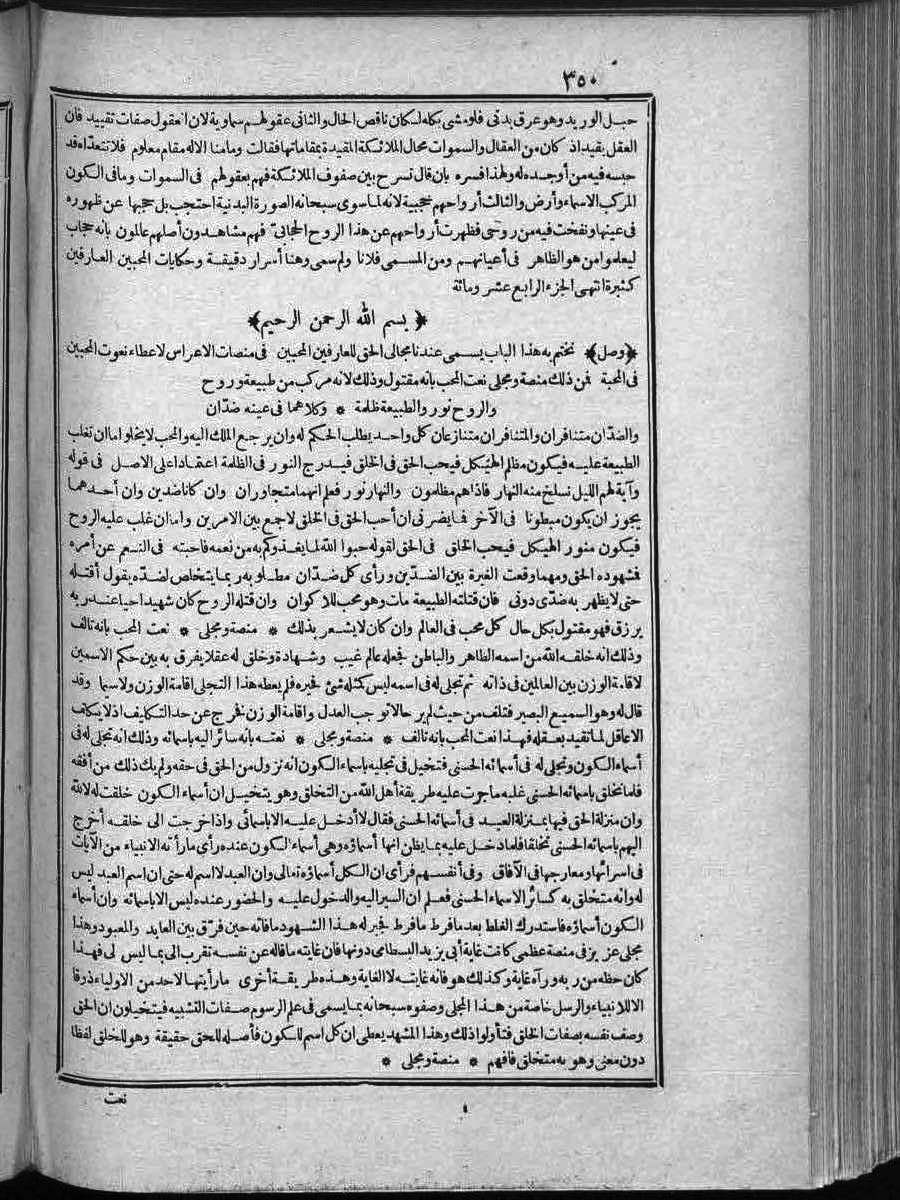 ٣٥٠
حبل الوريد وهو عرق بدنى فلو مشى بكله لكان ناقص الحال والثانى عقولهم سماوية لان العقول صفات تقييد فان
العقل يقيد اذ كان من العقال والسموات محال الملائكة المقيدة بمقاماتها فقالت وما منا الا له مقام معلوم فلا تتعداه قد
حبسه فيه من أوجده له ولهذا فسره بان قال نسرح بين صفوف الملائكة فهم بعقولهم فى السموات وما فى الكون
المركب الاسماء وأرض والثالث أرواحهم حجبية لانه لما سوى سبحانه الصورة البدنية احتجب بل حجبها عن ظهوره
فى عينها ونفخت فيه من روحى فظهرت أرواحهم عن هذا الروح الحجابى فهم مشاهدون أصلهم عالمون بانه حجاب
ليعلموا من هو الظاهر فى أعيانهم ومن المسمى فلانا ولم سمى وهنا أسرار دقيقة وحكايات المحبين العارفين
كثيرة انتهى الجزء الرابع عشر ومائة
﴿ بسم الله الرحمن الرحيم ﴾
﴿وصل﴾ نختم به هذا الباب يسمى عندنا مجالى الحق للعارفين المحبين فى منصات الاعراس لاعطاء نعوت المحبين
فى المحبة فمن ذلك منصة ومجلى نعت المحب بانه مقتول وذلك لانه مركب من طبيعة وروح
والروح نور والطبيعة ظلمة * وكلاهما فى عينه ضدّان
والضدّان متنافران والمتنافران متنازعان كل واحد يطلب الحكم له وان يرجع الملك اليه والمحب لا يخلو اما ان تغلب
الطبيعة عليه فيكون مظلم الهيكل فيحب الحق فى الخلق فيدرج النور فى الظلمة اعتمادا على الاصل فى قوله
وآية لهم الليل نسلخ منه النهار فاذاهم مظلمون والنهار نور فعلم انهما متجاوران وان كانا ضدين وان أحدهما
يجوز ان يكون مبطونا فى الآخر فما يضر نى ان أحب الحق فى الخلق لاجمع بين الامرين واما ان غلب عليه الروح
فيكون منور الهيكل فيحب الخلق فى الحق لقوله حبوا الله لما يغذوكم به من نعمه فاحببته فى النعم عن أمره
فشهوده الحق ومهما وقعت الغيرة بين الضدّين ورأى كل ضدّان مطلوبه ربما يتخلص لضدّه يقول أقتله
حتى لا يظهر به ضدّى دونى فان قتلته الطبيعة مات وهو محب للاكوان وان قتله الروح كان شهيدا حيا عند ربه
يرزق فهو مقتول بكل حال كل محب فى العالم وان كان لا يشعر بذلك * منصة ومجلى * نعت المحب بانه تالف
وذلك انه خلقه الله من اسمه الظاهر والباطن فجعله عالم غيب وشهادة وخلق له عقلا يفرق به بين حكم الاسمين
لاقامة الوزن بين العالمين فى ذاته ثم تجلى له فى اسمه ليس كمثله شئ فحيره فلم يعطه هذا التجلى اقامة الوزن ولا سيما وقد
قال له وهو السميع البصير فتلف من حيث لم ير حالا توجب العدل واقامة الوزن فخرج عن حد التكليف اذ لا يكلف
الا عاقل لما تقيد بعقله فهذا نعت المحب بانه تالف * منصة ومجلى * نعته بانه سائر اليه باسمائه وذلك انه تجلى له فى
أسماء الكون وتجلى له فى أسمائه الحسنى فتخيل فى تجليه باسماء الكون انه نزول من الحق فى حقه ولم يك ذلك من أفقه
فلما تخلق باسمائه الحسنى غلبه ماجرت عليه طريقة أهل الله من التخلق وهو يتخيل ان أسماء الكون خلقت له لالله
وان منزلة الحق فيها بمنزلة العبد فى أسمائه الحسنى فقال لا أدخل عليه الا باسمائى واذا خرجت الى خلقه أخرج
اليهم باسمائه الحسنى تخلقا فلما دخل عليه بما يظن انها أسماؤه وهى أسماء الكون عنده رأى مارأته الانبياء من الآيات
فى اسرائها ومعارجها فى الآفاق وفى أنفسهم فرأى ان الكل أسماؤه تعالى وان العبد لا اسم له حتى ان اسم العبد ليس
له وانه متخلق به كسائر الاسماء الحسنى فعلم ان السير اليه والدخول عليه والحضور عنده ليس الا باسمائه وان أسماء
الكون أسماؤه فاستدرك الغلط بعد مافرط مافرط فجبر له هذا الشهود مافاته حين فرّق بين العابد والمعبود وهذا
مجلى عزيز فى منصة عظمى كانت غاية أبى يزيد البسطامى دونها فان غايته ماقاله عن نفسه تقرب الى بما ليس لى فهذا
كان حظه من ربه ورآه غاية وكذلك هو فانه غايته لا الغاية وهذه طريقة أخرى مارأيتها لاحد من الاولياء ذوقا
الا للانبياء والرسل خاصة من هذا المجلى وصفوه سبحانه بما يسمى فى علم الرسوم صفات التشبيه فيتخيلون ان الحق
وصف نفسه بصفات الخلق فتأولوا ذلك وهذا المشهد يعطى ان كل اسم للكون فأصله للحق حقيقة وهو للخلق لفظا
دون معنى وهو به متخلق فافهم * منصة ومجلى *
نعت